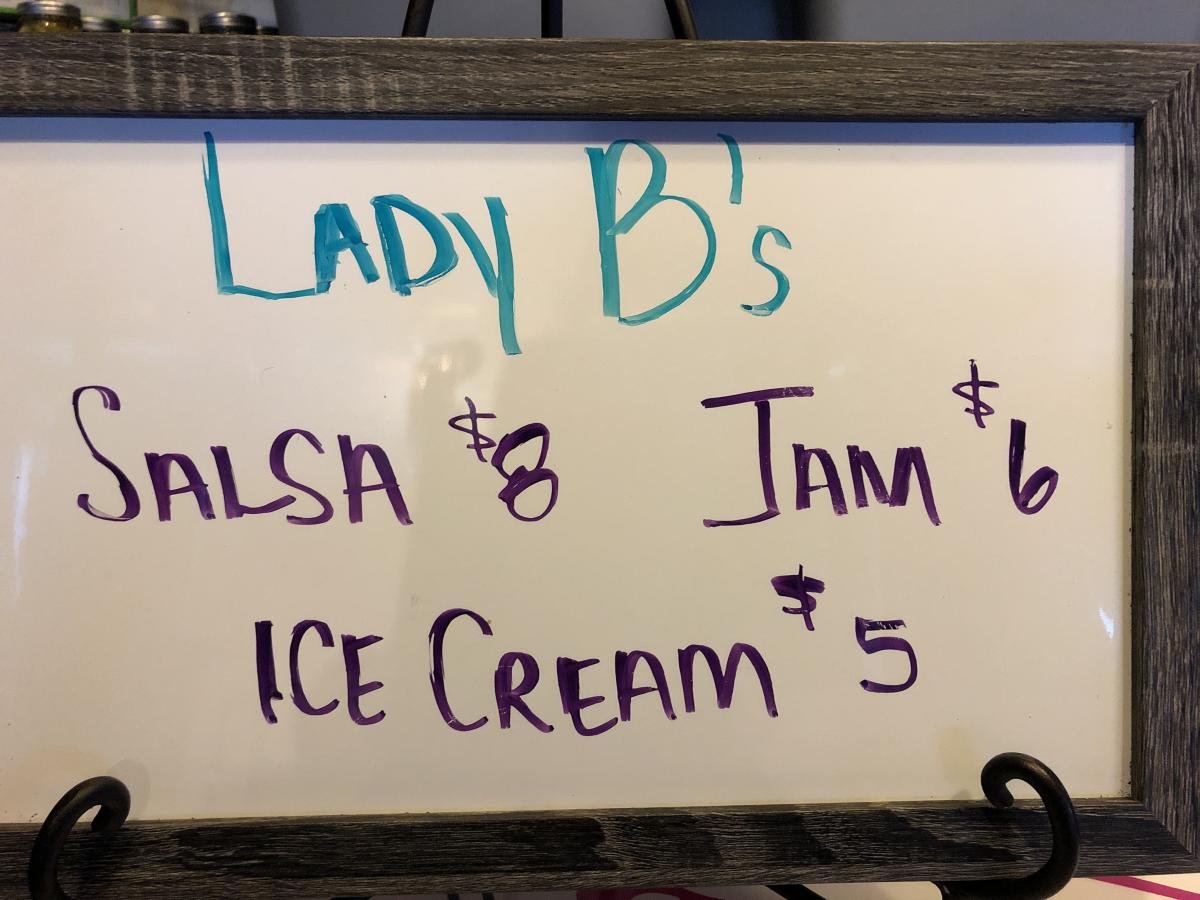 LADY B's
SALSA $8 JAM $6
ICE CREAM $5